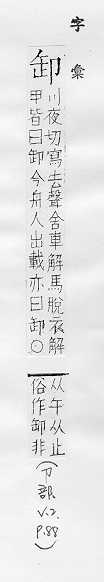 字彙
卸
川夜切寫去聲舍車解馬脫衣解
甲皆曰卸今舟人出載亦曰卸○
从午从止
俗作卸非
(卩部
V.2.
P.88)